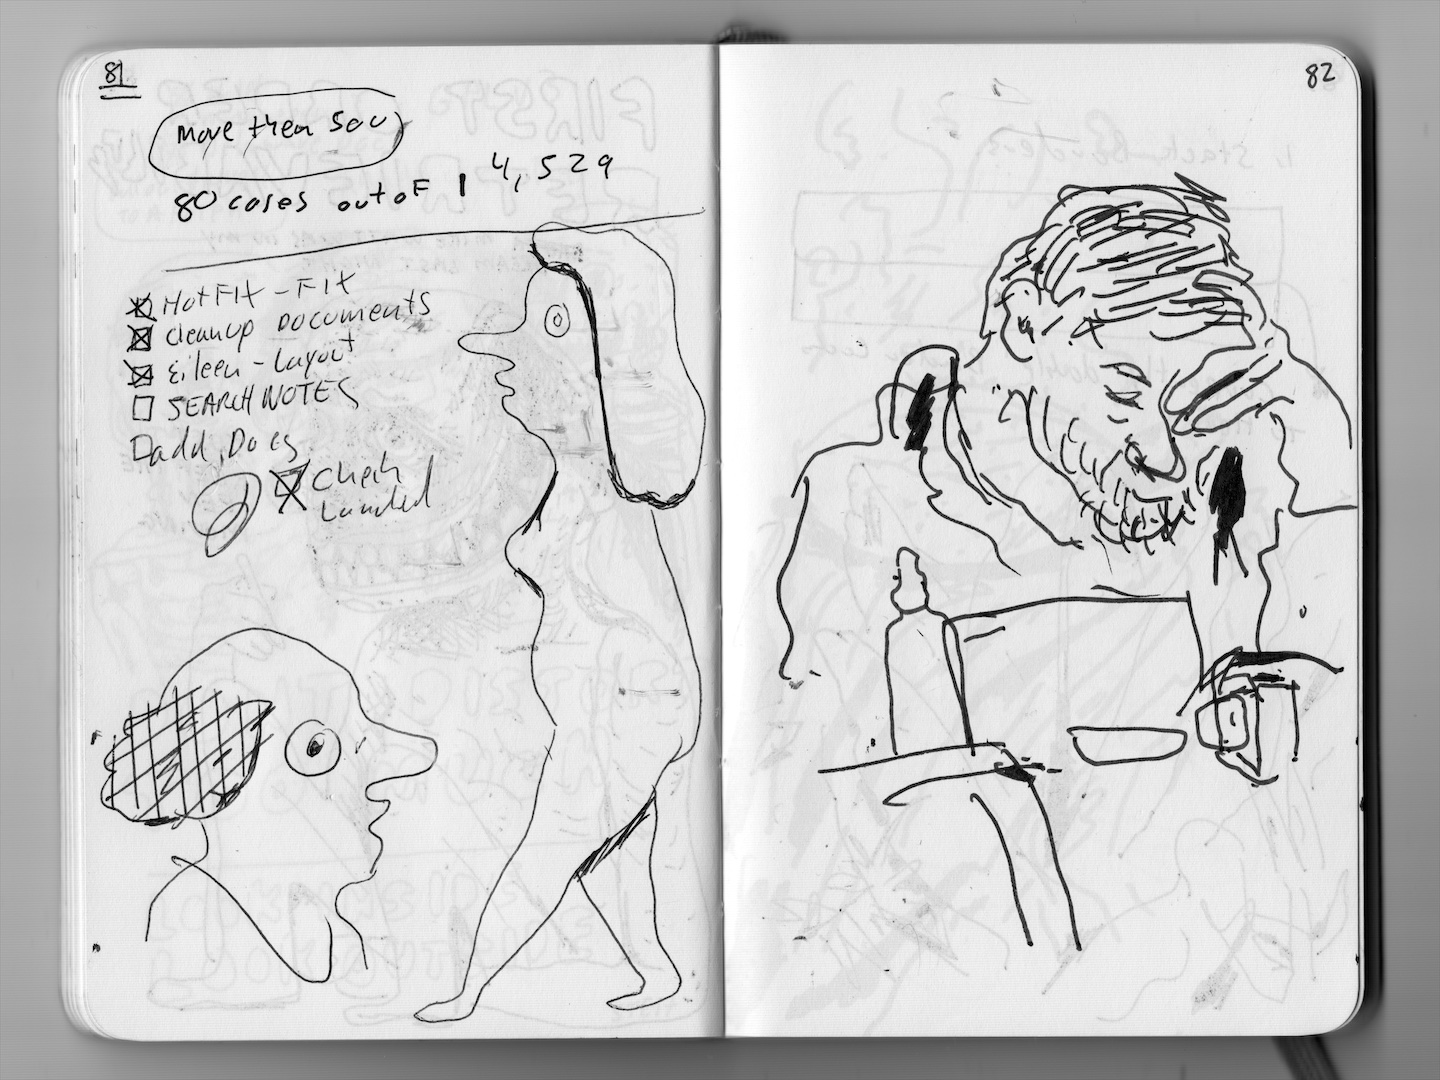 81
More then 500
80 cases out of 14,529
HotFIX - FIX
Cleanup Documents
Eileen - Layout
SEARCH NOTES
Dadd, Docs
Check
82